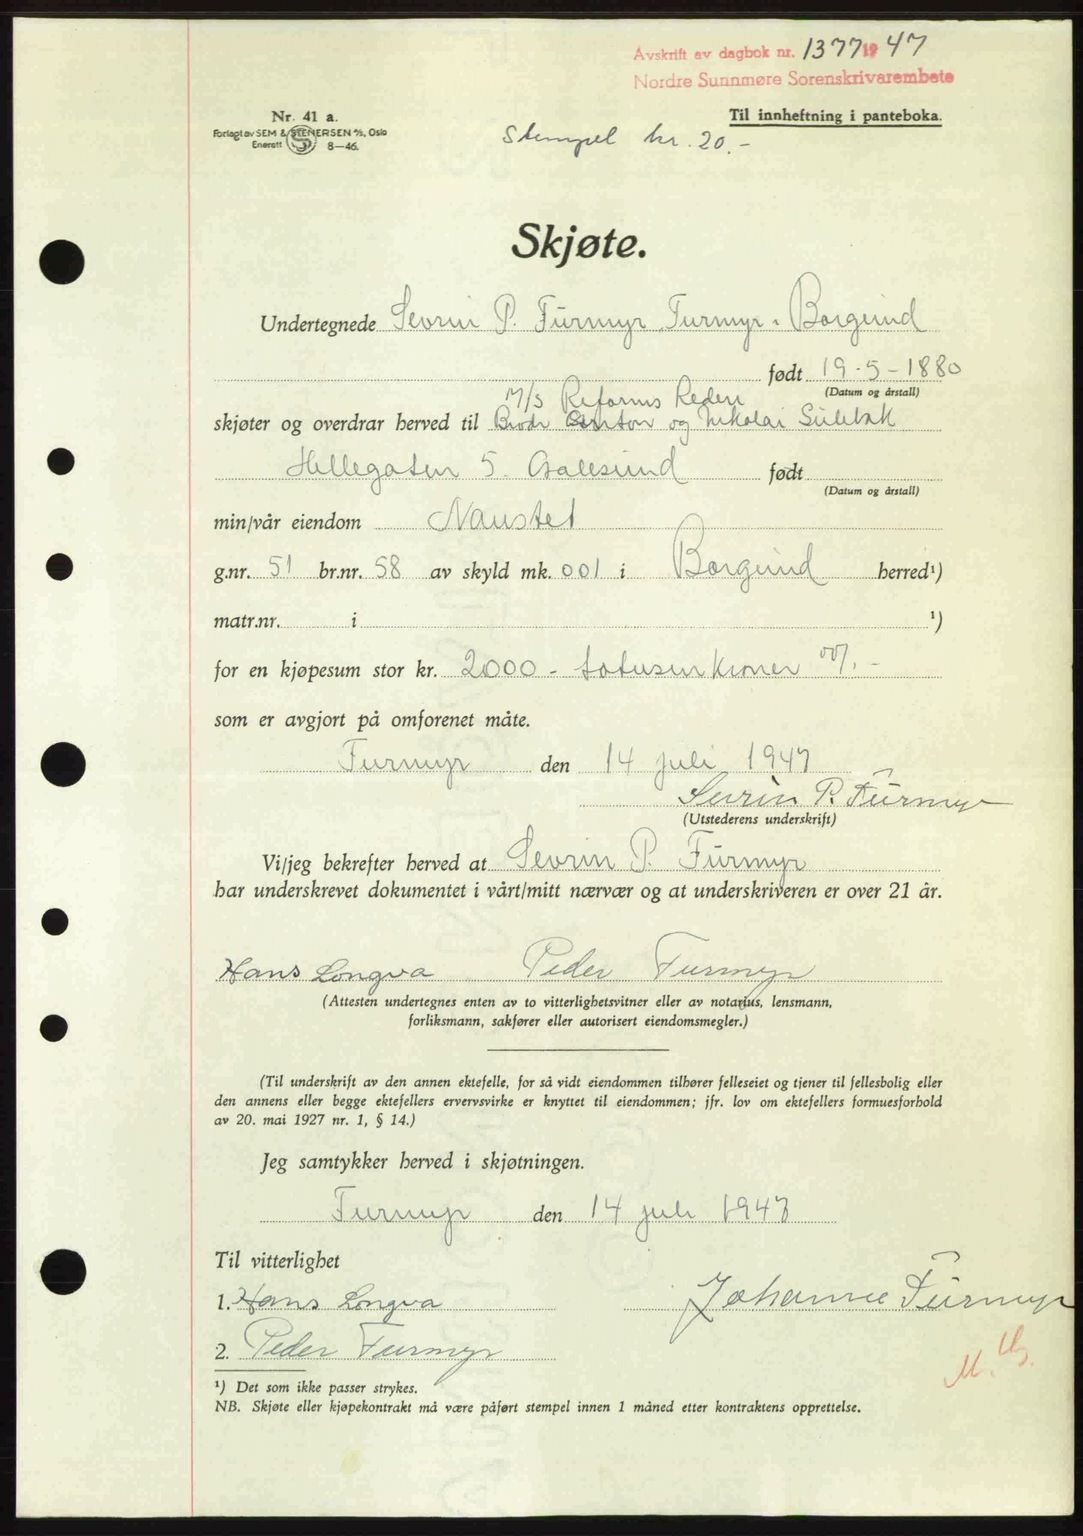 Avskrift av dagbok nr. 1377 1947
Nordre Sunnmøre Sorenskrivarembete
Nr. 41 a.
Til innheftning i panteboka.
Forlagt av SEM & STENERSEN A/S, Oslo
Enerett 8—46.
Stempel kr. 20.-
Skjøte.
Undertegnede Sevrin P. Furmyr, Furmyr. Borgund
født 19-5-1880
(Datum og årstall)
M/S Reforms Rederi
skjøter og overdrar herved til Brødr og Nikolai Sulebak
Hellegaten 5. Aalesund født
(Datum og årstall)
min/vår eiendom Naustet
g.nr. 51 br.nr. 58 av skyld mk. 001 i Borgund herred¹)
matr.nr. i ¹)
for en kjøpesum stor kr. 2000- totusenkroner 00/.-
som er avgjort på omforenet måte.
Furmyr den 14 juli 1947
Sevrin P. Furmyr
(Utstederens underskrift)
Vi/jeg bekrefter herved at Sevrin P. Furmyr
har underskrevet dokumentet i vårt/mitt nærvær og at underskriveren er over 21 år.
Hans Longva Peder Furmyr
(Attesten undertegnes enten av to vitterlighetsvitner eller av notarius, lensmann,
forliksmann, sakfører eller autorisert eiendomsmegler.)
(Til underskrift av den annen ektefelle, for så vidt eiendommen tilhører felleseiet og tjener til fellesbolig eller
den annens eller begge ektefellers ervervsvirke er knyttet til eiendommen; jfr. lov om ektefellers formuesforhold
av 20. mai 1927 nr. 1, § 14.)
Jeg samtykker herved i skjøtningen.
Furmyr den 14 juli 1947
Til vitterlighet
1. Hans Longva Johanne Furmyr
2. Peder Furmyr
¹) Det som ikke passer strykes.
NB. Skjøte eller kjøpekontrakt må være påført stempel innen 1 måned etter kontraktens opprettelse.